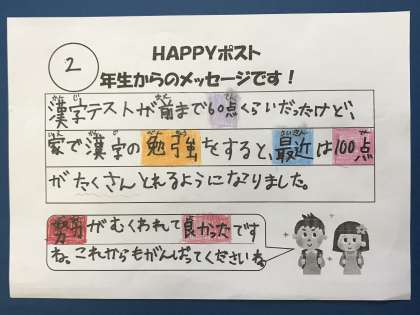 2
HAPPYポスト
年生からのメッセージです！
漢字テストが前まで60点くらいだったけど、
家で漢字の勉強をすると、最近は100点
がたくさんとれるようになりました。
努力がむくわれて良かったです
ね。これからもがんばってくださいね